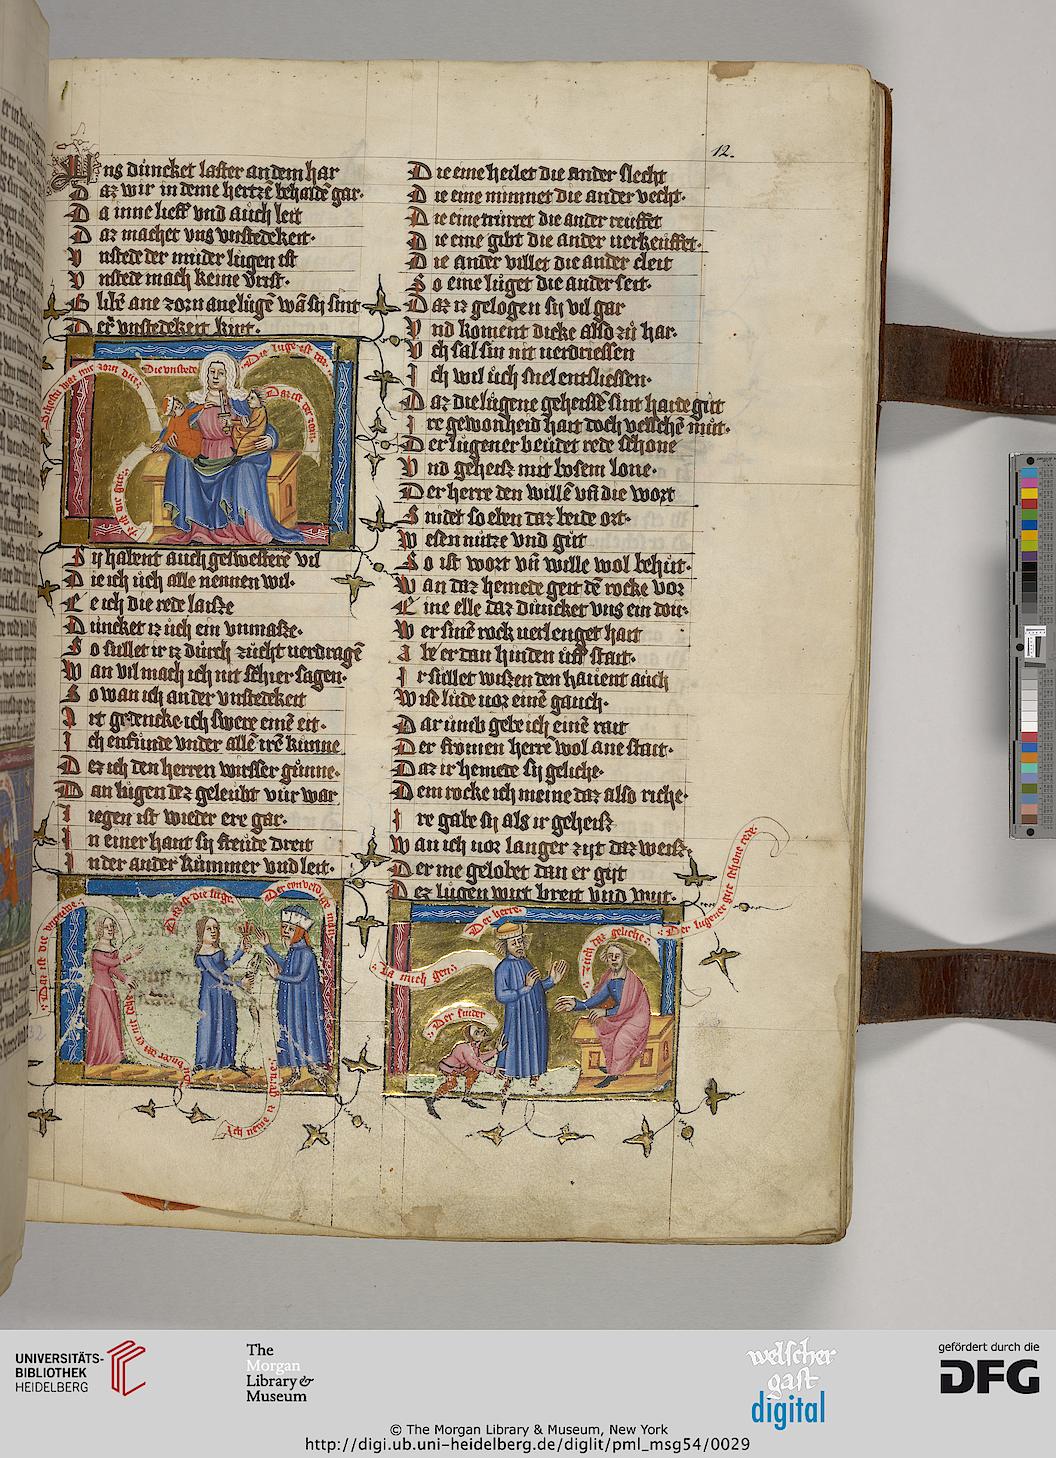 12.
Uns duncket laster an dem har
Daz wir in deme hertzē behaldē gar·
Da inne lieff vnd auch leit
Daz machet vns vnstedekeit·
Vnstede der muder lugen ist
Vnstede mach keine vrist·
G ane zorn ane lugē wā sy sint
Der vnstedekeit kint·
Die vnstede
Die luge ist
Daz ist der
ist die
Sy habent auch geswesterē vil
Die ich uch alle nennen wil·
E e ich die rede laisze
Duncket iz uch ein vnmasze·
So sullet ir iz durch zucht verdragē
Wan vil mach ich nit schier sagen·
So wan ich an der vnstedekeit
Irt gedencke ich swere einē eit·
Ich enfunde vnder allē irē kunne
Dez ich den herren wirsser gunne·
Dan lugen dez geleubt vur war
Liegen ist wieder ere gar·
In einer hant sy freude dreit
In der ander kummer vnd leit·
Daz ist die
Daz ist die luge·
Der einveldige man
Ich neme iz gerne·
Die eine heilet die ander slecht
Die eine minnet die ander vecht·
Die eine die ander reuffet
Die eine gibt die ander verkeuffet·
Die ander villet die ander cleit
So eine luget die ander seit·
Daz iz gelogen sy vil gar
Vnd koment dicke also zu har·
Vch sal sin nit verdriessen
Ich wil uch snel entsliessen·
Daz die lugene geheissē sint harte gut
Ire gewonheid hait doch velschē mut·
Der lugener beudet rede schone
Vnd geheisz mit bosem lone·
Der herre den willē vñ die wort
Snidet so eben daz beide ort·
Wesen nutze vnd gut
So ist wort vñ wille wol behut·
Wan daz hemede geit dē rocke vor
Eine elle daz duncket vns ein dor·
Wer sinē rock verlenget hait
Abe er dan hinden uff stait·
Ir sullet wiszen den hauent auch
Wise lude vor einē gauch·
Dar umb gebe ich einē rait
Der fromen herrē wol ane stait·
Daz ir hemede sy geliche·
Dem rocke ich meine daz also riche·
Ire gabe sy als ir geheisz
Wan ich vor langer zyt daz weisz·
Der me gelobet dan er gyt
Dez lugen wirt breit vnd wyt·
Der herre·
La mich gen·
Zuch daz geliche·
Der lugener gut schone rede·
UNIVERSITÄTS-
BIBLIOTHEK
HEIDELBERG
The
Morgan
Library &
Museum
welscher
gast
digital
gefördert durch die
DFG
© The Morgan Library & Museum, New York
http://digi.ub.uni-heidelberg.de/diglit/pml_msg54/0029